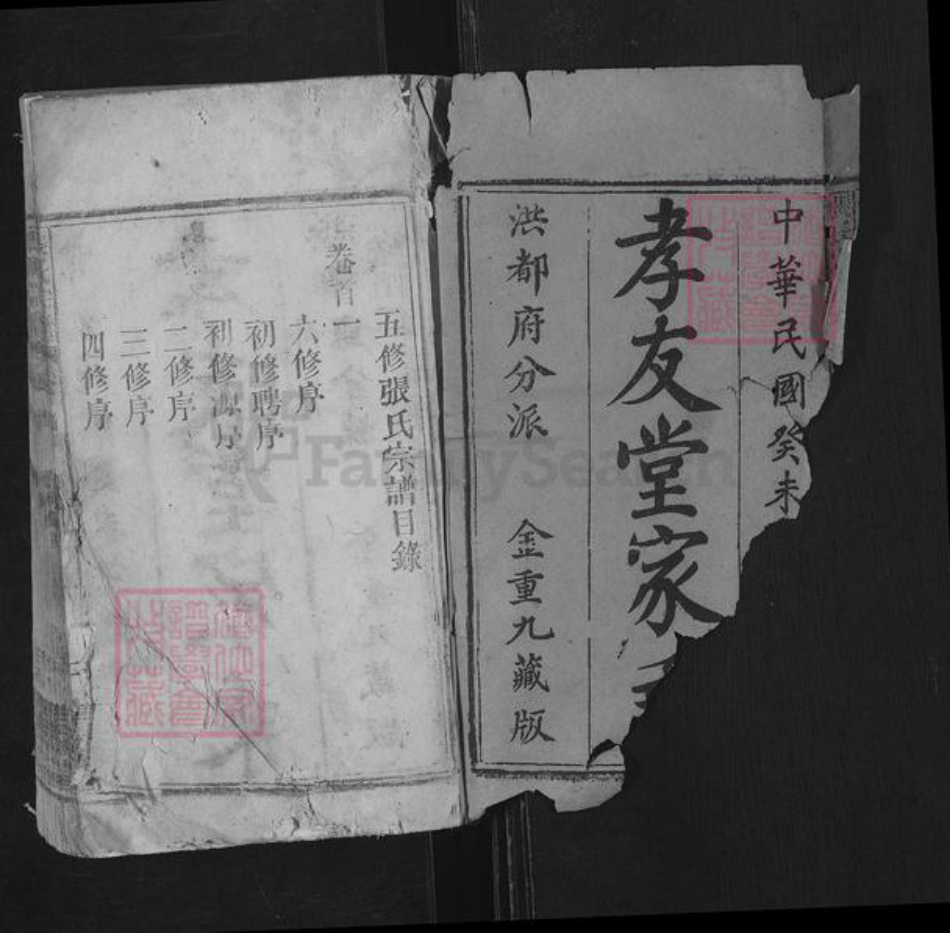 中華民國癸未
孝友堂家
洪都府分派 金重九藏版
五修張氏宗譜目錄
卷首一
六修序
初修聘序
初修源序
二修序
三修序
四修序
FamilySearch